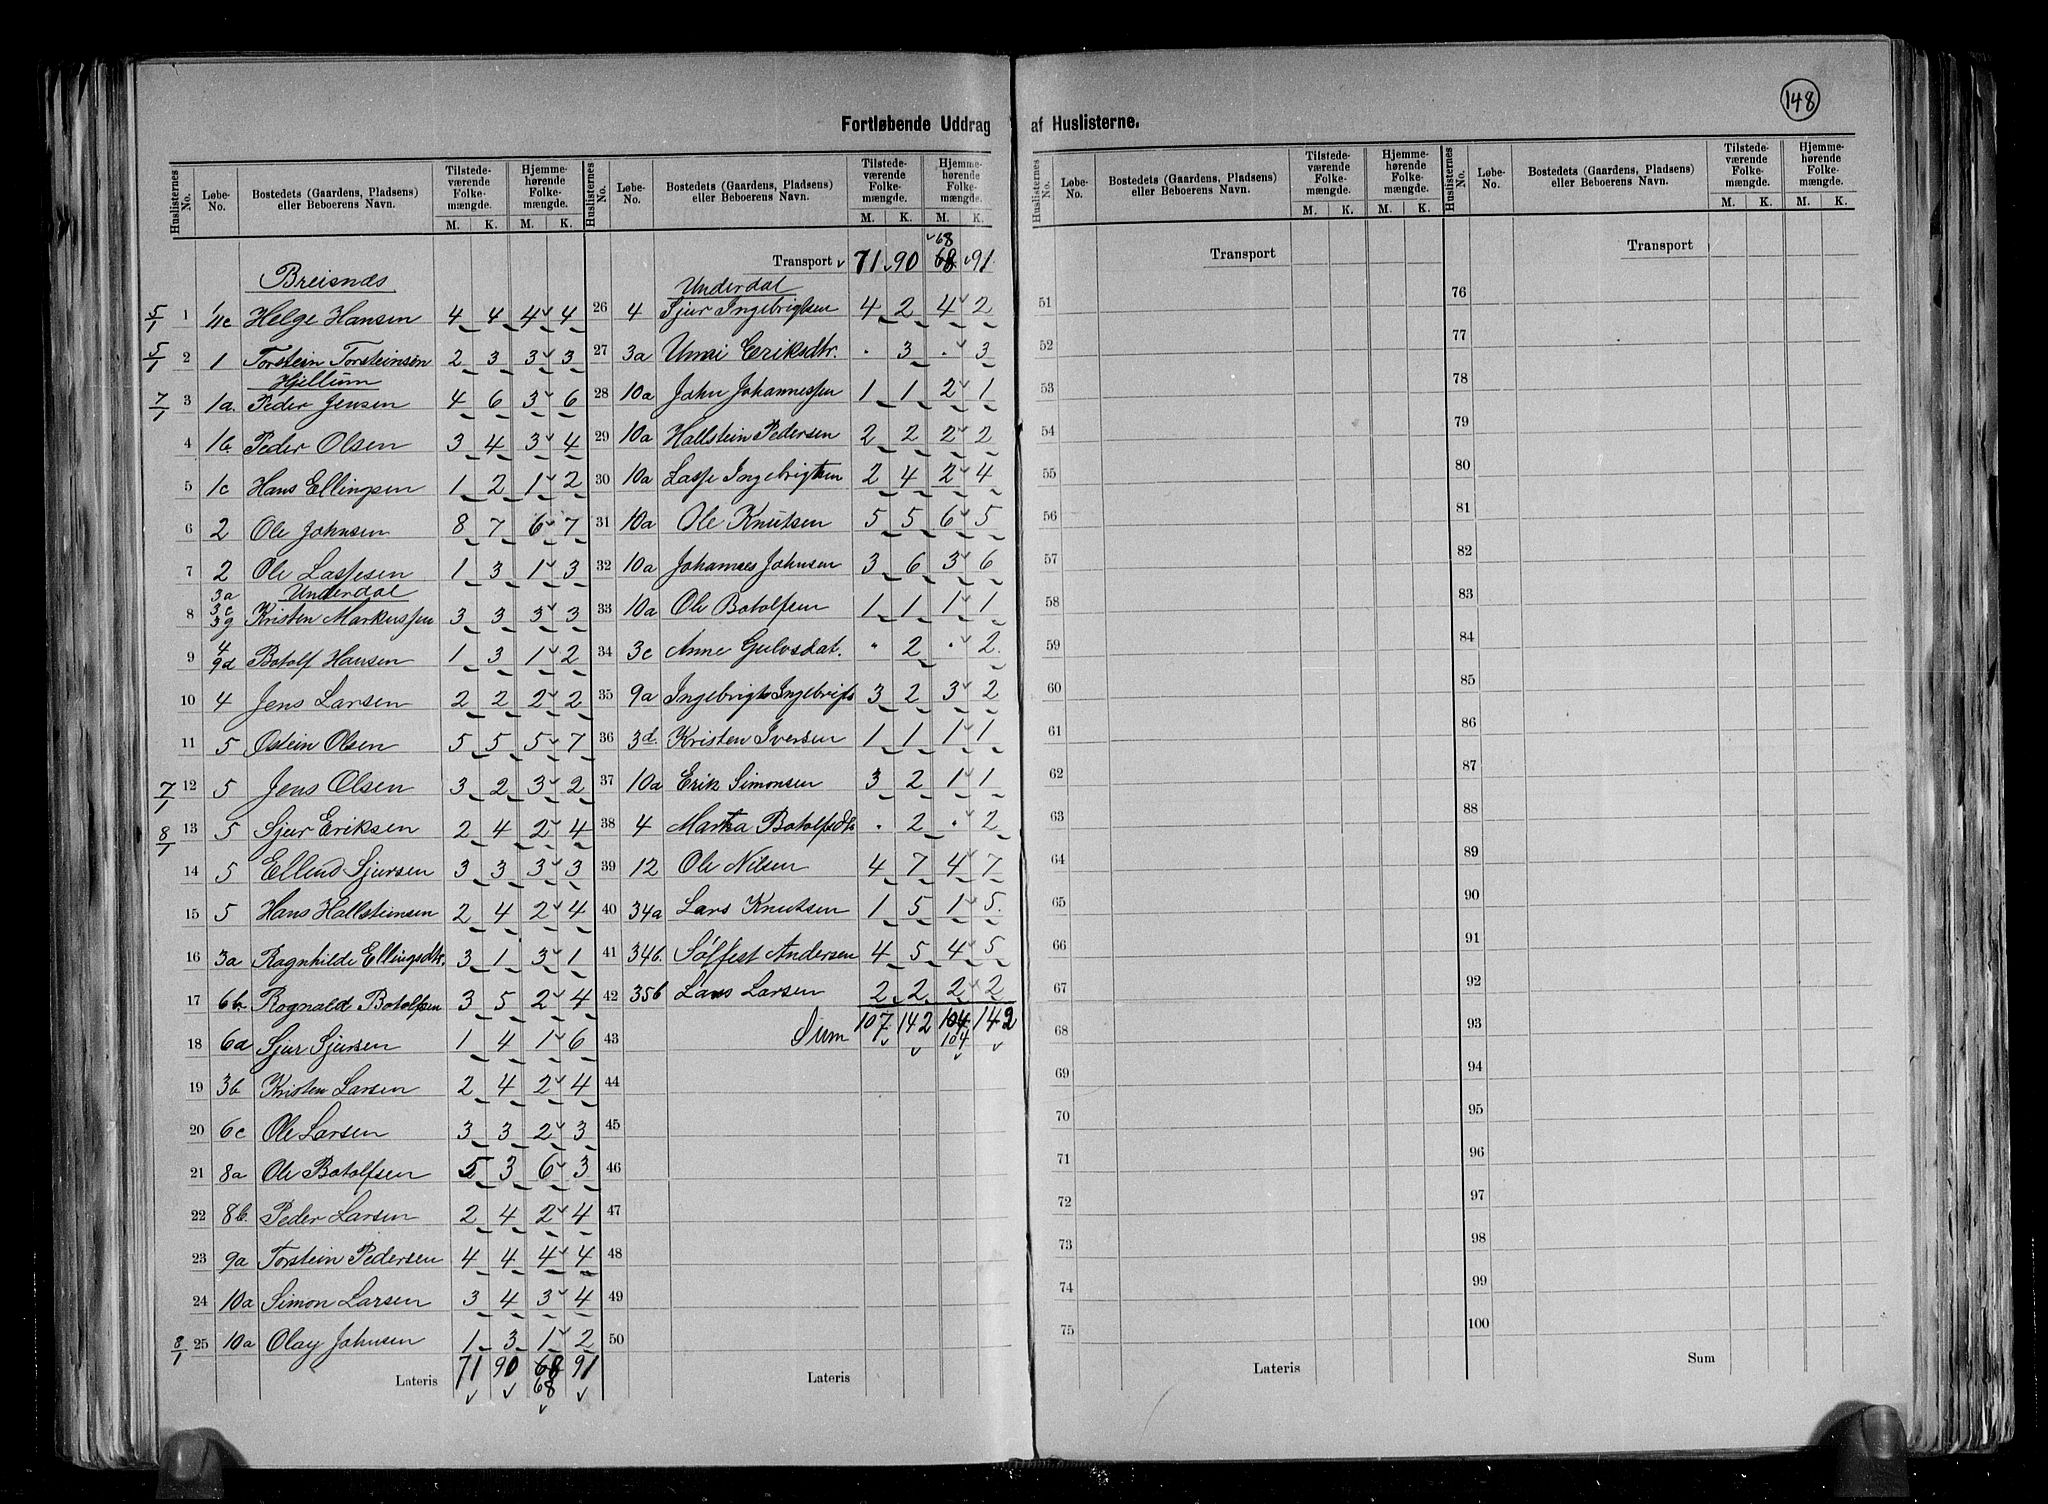 148
Fortløbende Uddrag af Huslisterne.
Huslisternes No. | Løbe-No. | Bostedets (Gaardens, Pladsens) eller Beboerens Navn. | Tilstedeværende Folkemængde. M. K. | Hjemmehørende Folkemængde. M. K.
Breisnæs
5/1 1 11c Helge Hansen 4 4 4 4
5/1 2 1 Torstein Torsteinsen 2 3 3 3
Hjellum
7/1 3 1a. Peder Jensen 4 6 3 6
4 1b. Peder Olsen 3 4 3 4
5 1c Hans Ellingsen 1 2 1 2
6 2 Ole Johnsen 8 7 6 7
7 2 Ole Lassesen 1 3 1 3
Underdal
8 3a 3c 3g Kristen Markussen 3 3 3 3
9 4 9d Botolf Hansen 1 3 1 2
10 4 Jens Larsen 2 2 2 2
11 5 Østein Olsen 5 5 5 7
7/1 12 5 Jens Olsen 3 2 3 2
8/1 13 5 Sjur Eriksen 2 4 2 4
14 5 Ellend Sjursen 3 3 3 3
15 5 Hans Hallsteinsen 2 4 2 4
16 3a Ragnhilde Ellingsdtr. 3 1 3 1
17 6b. Rognald Botolfsen 3 5 2 4
18 6a Sjur Sjursen 1 4 1 6
19 3b Kristen Larsen 2 4 2 4
20 6c Ole Larsen 3 3 2 3
21 8a Ole Botolfsen 5 3 6 3
22 8b. Peder Larsen 2 4 2 4
23 9a Torstein Pedersen 4 4 4 4
24 10a Simon Larsen 3 4 3 4
8/1 25 10a Olay Johnsen 1 3 1 2
Lateris 71 90 68 91
68
Huslisternes No. | Løbe-No. | Bostedets (Gaardens, Pladsens) eller Beboerens Navn. | Tilstedeværende Folkemængde. M. K. | Hjemmehørende Folkemængde. M. K.
68
Transport 71 90 68 91
Underdal
26 4 Sjur Ingebrigtsen 4 2 4 2
27 3a Unni Eriksdtr. " 3 " 3
28 10a John Johannessen 1 1 2 1
29 10a Hallstein Pedersen 2 2 2 2
30 10a Lasse Ingebrigtsen 2 4 2 4
31 10a Ole Knutsen 5 5 6 5
32 10a Johannes Johnsen 3 6 3 6
33 10a Ole Botolfsen 1 1 1 1
34 3c Anne Gulvsdat. " 2 " 2
35 9a Ingebrigt Ingebrigts 3 2 3 2
36 3d. Kristen Iversen 1 1 1 1
37 10a Erik Simonsen 3 2 1 1
38 4 Martha Botolfsdtr " 2 " 2
39 12 Ole Nilsen 4 7 4 7
40 34a Lars Knutsen 1 5 1 5
41 34b. Sølfest Andersen 4 5 4 5
42 35b Lars Larsen 2 2 2 2
43 Sum 107 142 104 142
104
44
45
46
47
48
49
50
Lateris
Huslisternes No. | Løbe-No. | Bostedets (Gaardens, Pladsens) eller Beboerens Navn. | Tilstedeværende Folkemængde. M. K. | Hjemmehørende Folkemængde. M. K.
Transport
51
52
53
54
55
56
57
58
59
60
61
62
63
64
65
66
67
68
69
70
71
72
73
74
75
Lateris
Huslisternes No. | Løbe-No. | Bostedets (Gaardens, Pladsens) eller Beboerens Navn. | Tilstedeværende Folkemængde. M. K. | Hjemmehørende Folkemængde. M. K.
Transport
76
77
78
79
80
81
82
83
84
85
86
87
88
89
90
91
92
93
94
95
96
97
98
99
100
Sum